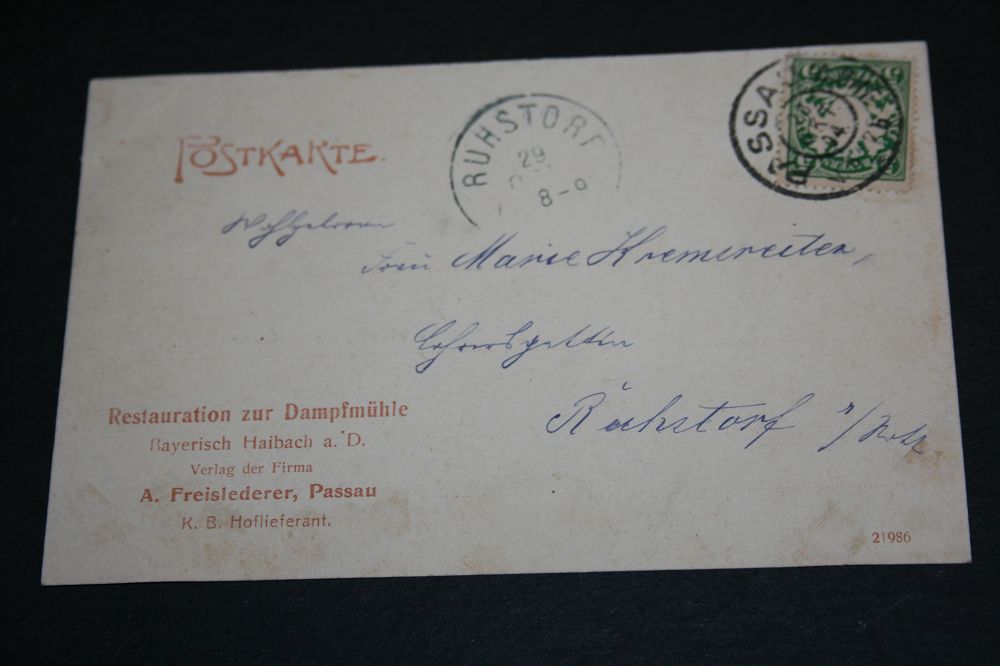 POSTKARTE.
RUHSTORF
29
8-9
PASSAU
Wohlgeboren
Frau Marie Kremsreiter,
Lehrersgattin
Ruhstorf a/Rott
Restauration zur Dampfmühle
Bayerisch Haibach a. D.
Verlag der Firma
A. Freislederer, Passau
K. B. Hoflieferant.
21986